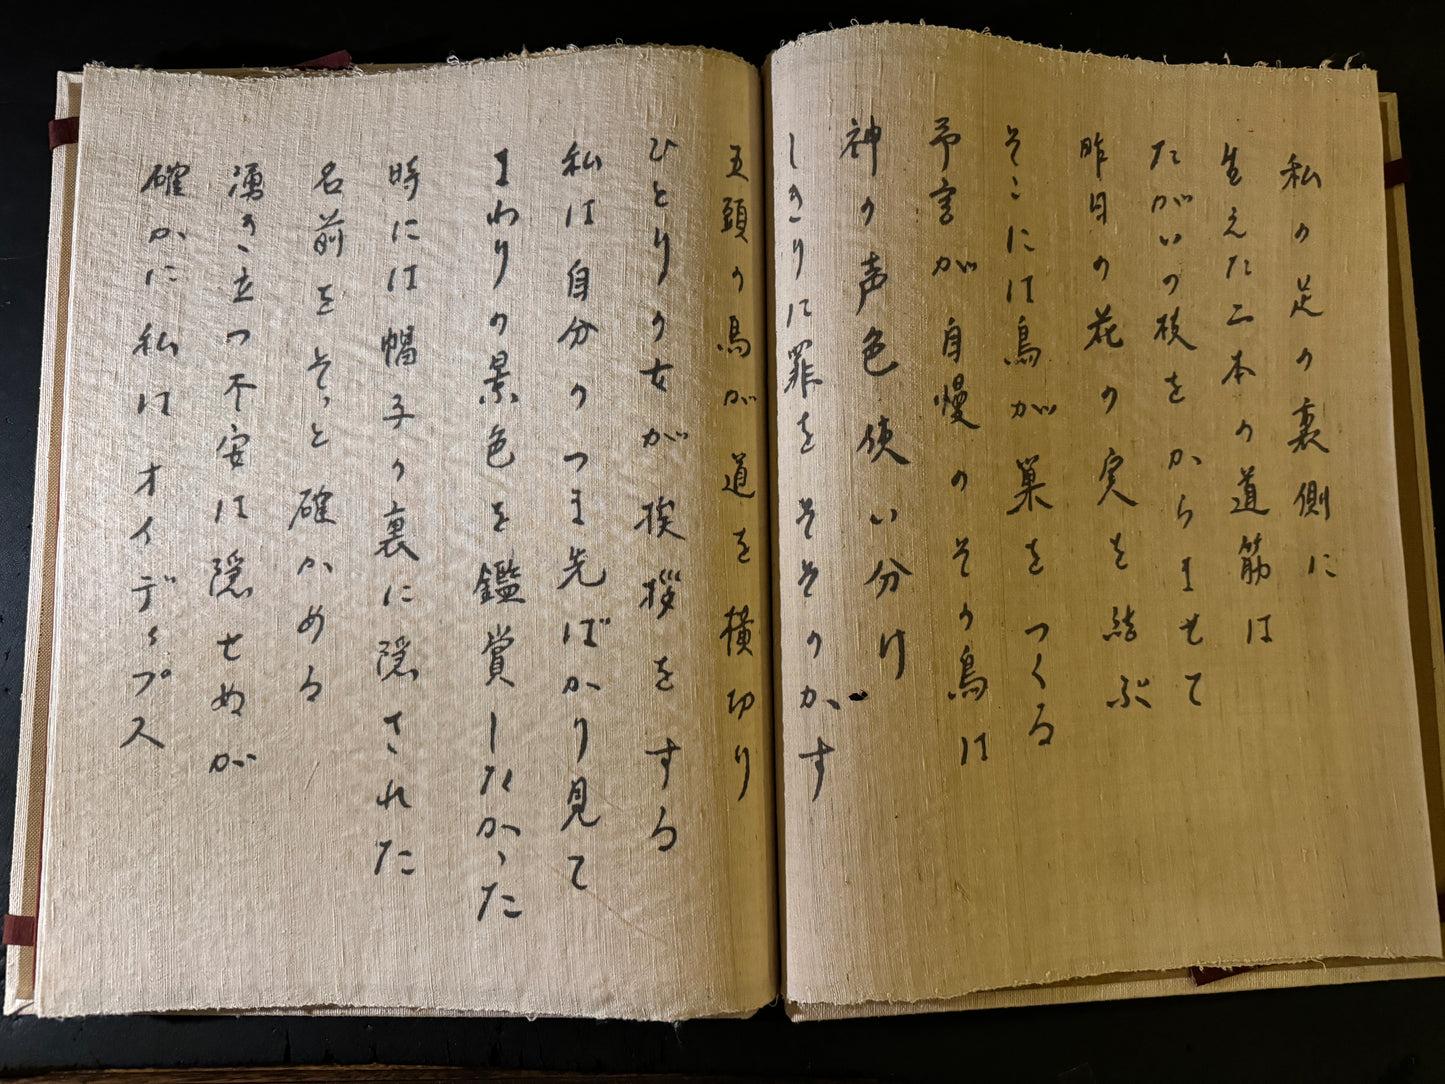 私の足の裏側に
生えた二本の道筋は
たがいの枝をからませて
昨日の花の実を結ぶ
そこには鳥が巣をつくる
予言が自慢のその鳥は
神の声色使い分け
しきりに罪をそそのかす
五頭の馬が道を横切り
ひとりの女が挨拶をする
私は自分のつま先ばかり見て
まわりの景色を鑑賞したかった
時には帽子の裏に隠された
名前をそっと確かめる
湧き立つ不安は隠せぬが
確かに私はオイディプス